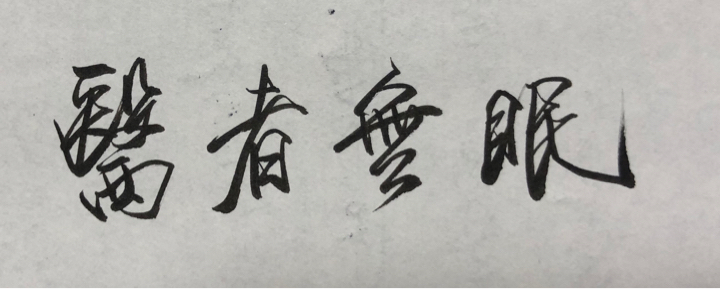 醫者無眠